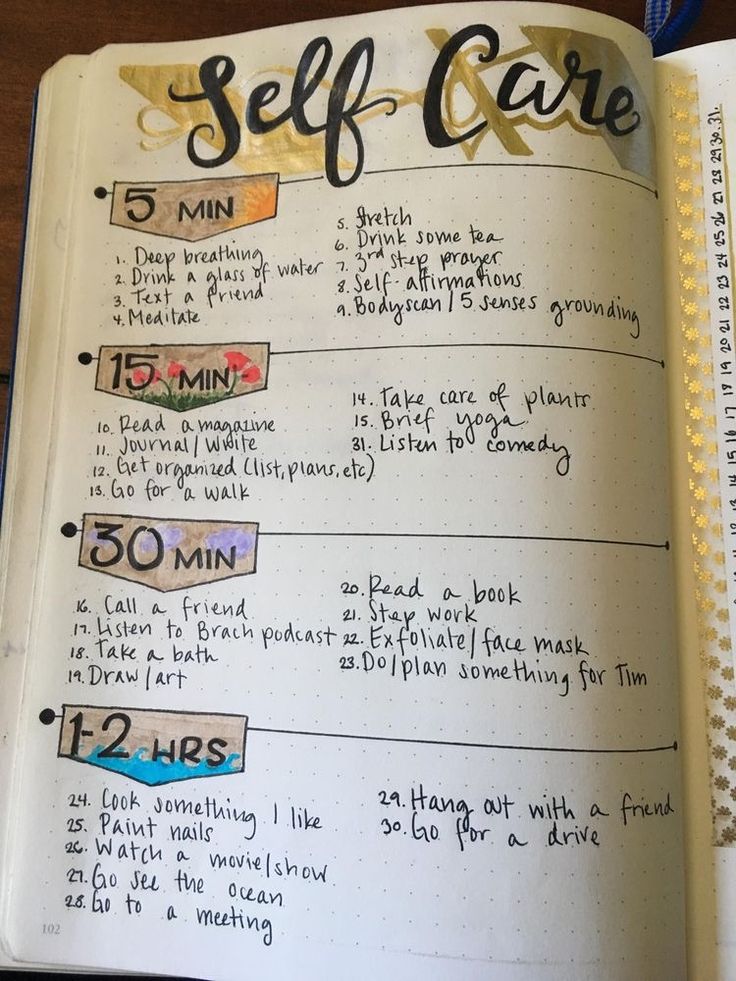 Self Care
5 MIN
1. Deep breathing
2. Drink a glass of water
3. Text a friend
4. Meditate
5. Stretch
6. Drink some tea
7. 3rd step prayer
8. Self-affirmations
9. Bodyscan/5 senses grounding
15 MIN
10. Read a magazine
11. Journal/Write
12. Get organized (list, plans, etc)
13. Go for a walk
14. Take care of plants
15. Brief yoga
31. Listen to comedy
30 MIN
16. Call a friend
17. Listen to Brach podcast
18. Take a bath
19. Draw/art
20. Read a book
21. Step work
22. Exfoliate/face mask
23. Do/plan something for Tim
1-2 HRS
24. Cook something I like
25. Paint nails
26. Watch a movie/show
27. Go see the ocean
28. Go to a meeting
29. Hang out with a friend
30. Go for a drive
102
14 15 16 17 18 19 20 21 22 23 24 25 26 27 28 29 30 31